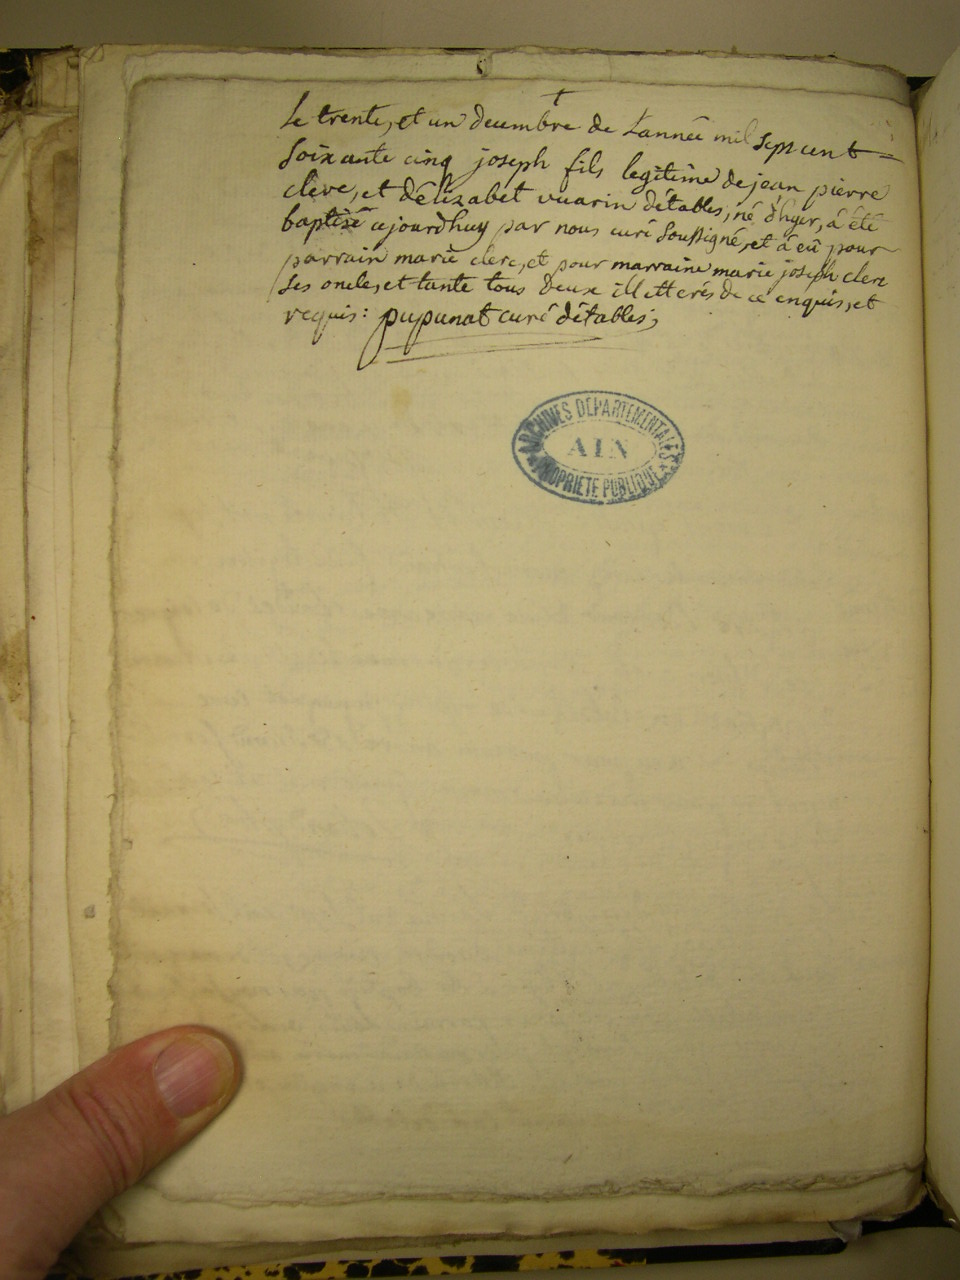 †
Le trente, et un decembre de L'année mil sept cent
soixante cinq joseph fils legitime de jean pierre
cleve, et délizabet vuarin détables, né d'hyer, à été
baptisé cejourdhuy par nous curé soussigné, et à eû pour
parrain marie clerc, et pour marraine marie joseph clerc
ses oncle, et tante tous deux illetterés de ce enquis, et
requis: pupunat curé détables;
ARCHIVES DEPARTEMENTALES
AIN
PROPRIETE PUBLIQUE